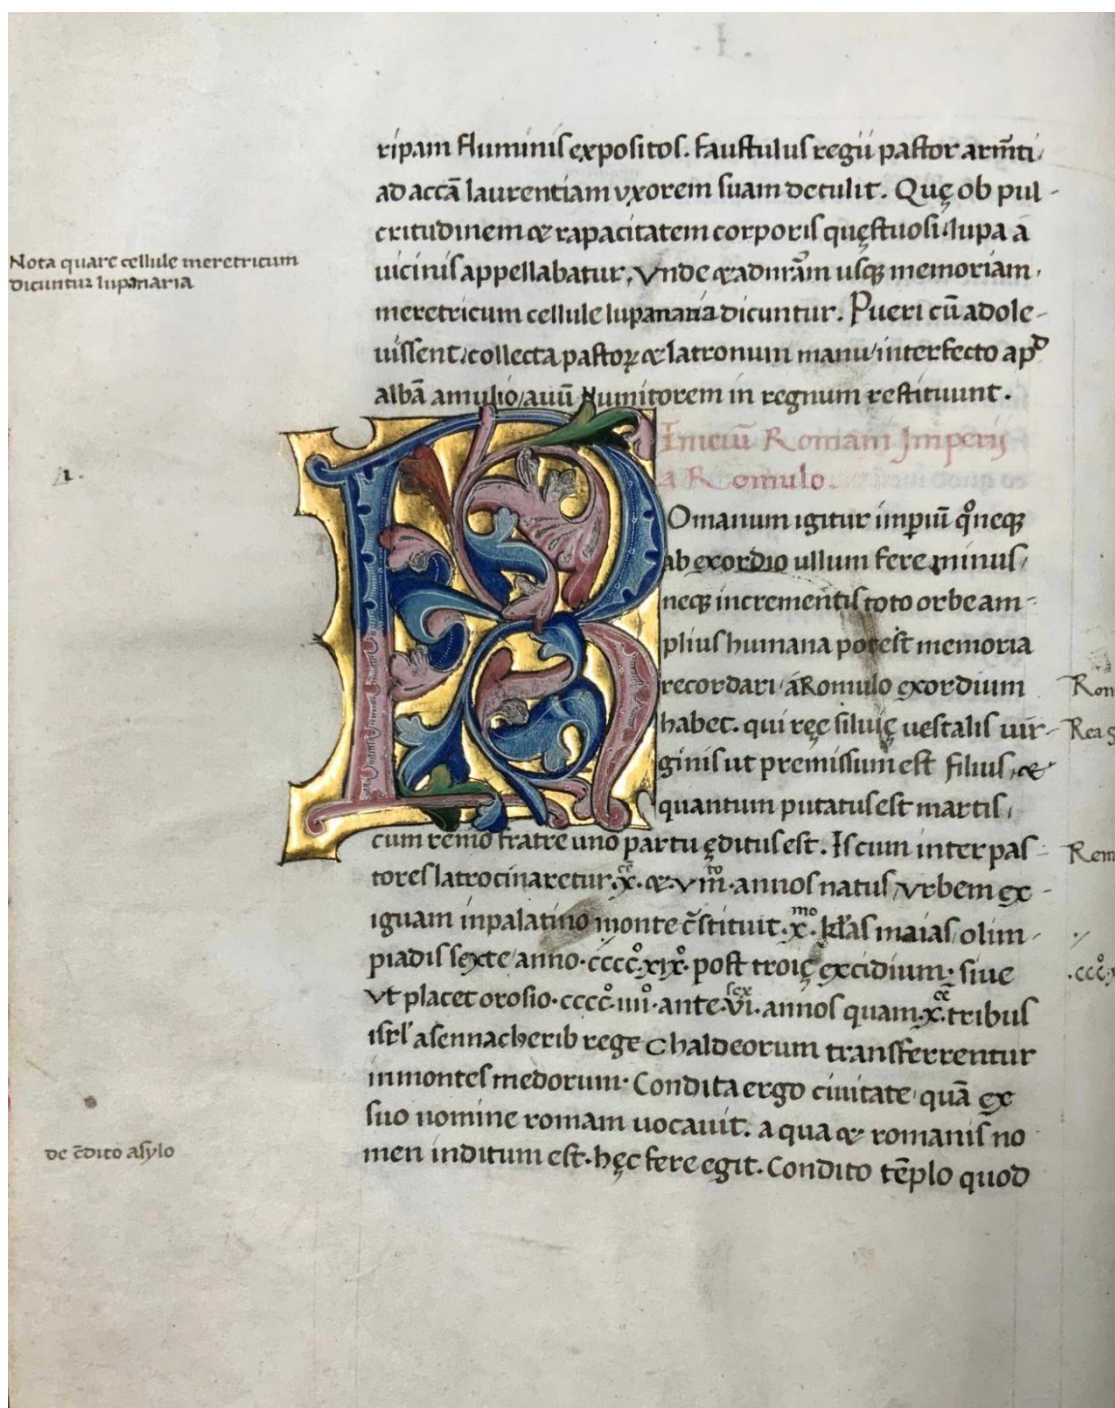 ripam fluminis expositos. Faustulus regii pastor arm̄ti
ad accā laurentiam vxorem suam detulit. Quę ob pul-
critudinem & rapacitatem corporis quęstuosi lupa a
Nota quare cellule meretricum
dicuntur lupanaria
uicinis appellabatur, vnde & ad nr̄am usq; memoriam,
meretricum cellule lupanaria dicuntur. Pueri cū adole-
uissent, collecta pastoꝝ & latronum manu, interfecto apᵈ
albā amulio, auū Numitorem in regnum restituunt.
Iniciū Romani Imperij
a Romulo.
.1.
ROmanum igitur imꝑiū qᵒ neq;
ab exordio ullum fere minus,
neq; incrementis toto orbe am-
plius humana potest memoria
recordari, a Romulo exordium
Rom
habet. qui ręę siluię uestalis uir-
Rea s
ginis ut premissum est filius, &
quantum putatus est martis,
cum remo fratre uno partu ęditus est. Is cum inter pas-
Rem
tores latrocinaretur .x̊. & .vııı̊. annos natus, vrbem ex-
iguam in palatino monte c̄stituit .xᵐᵒ. kl̄as maias, olim-
piadis sexte, anno .cccc̊.xıx̊. post troię excidium. siue
.ccc̊.
vt placet orosio .cccc̊.ıııı̊. ante .vi. annos quam .x̊. tribus
isrl̄ a sennacherib rege Chaldeorum transferrentur
in montes medorum. Condita ergo ciuitate, quā ex
suo nomine romam uocauit. a qua & romanis no
de c̄dito asylo
men inditum est. hęc fere egit. Condito tēplo quod